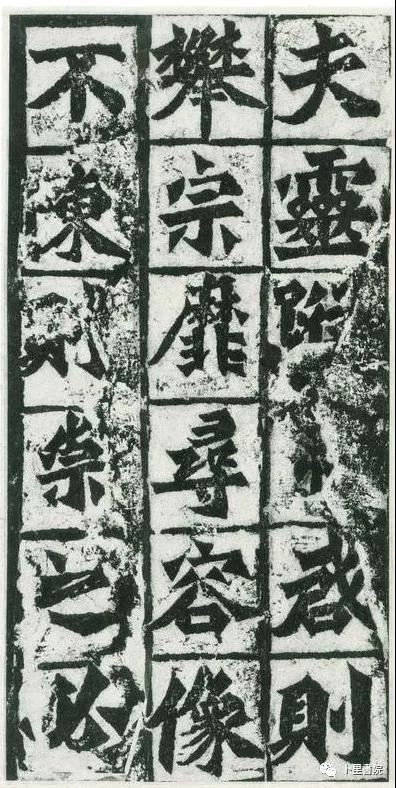 夫靈蹤啟則
攀宗靡尋容像
不陳則崇之必
卜里書院